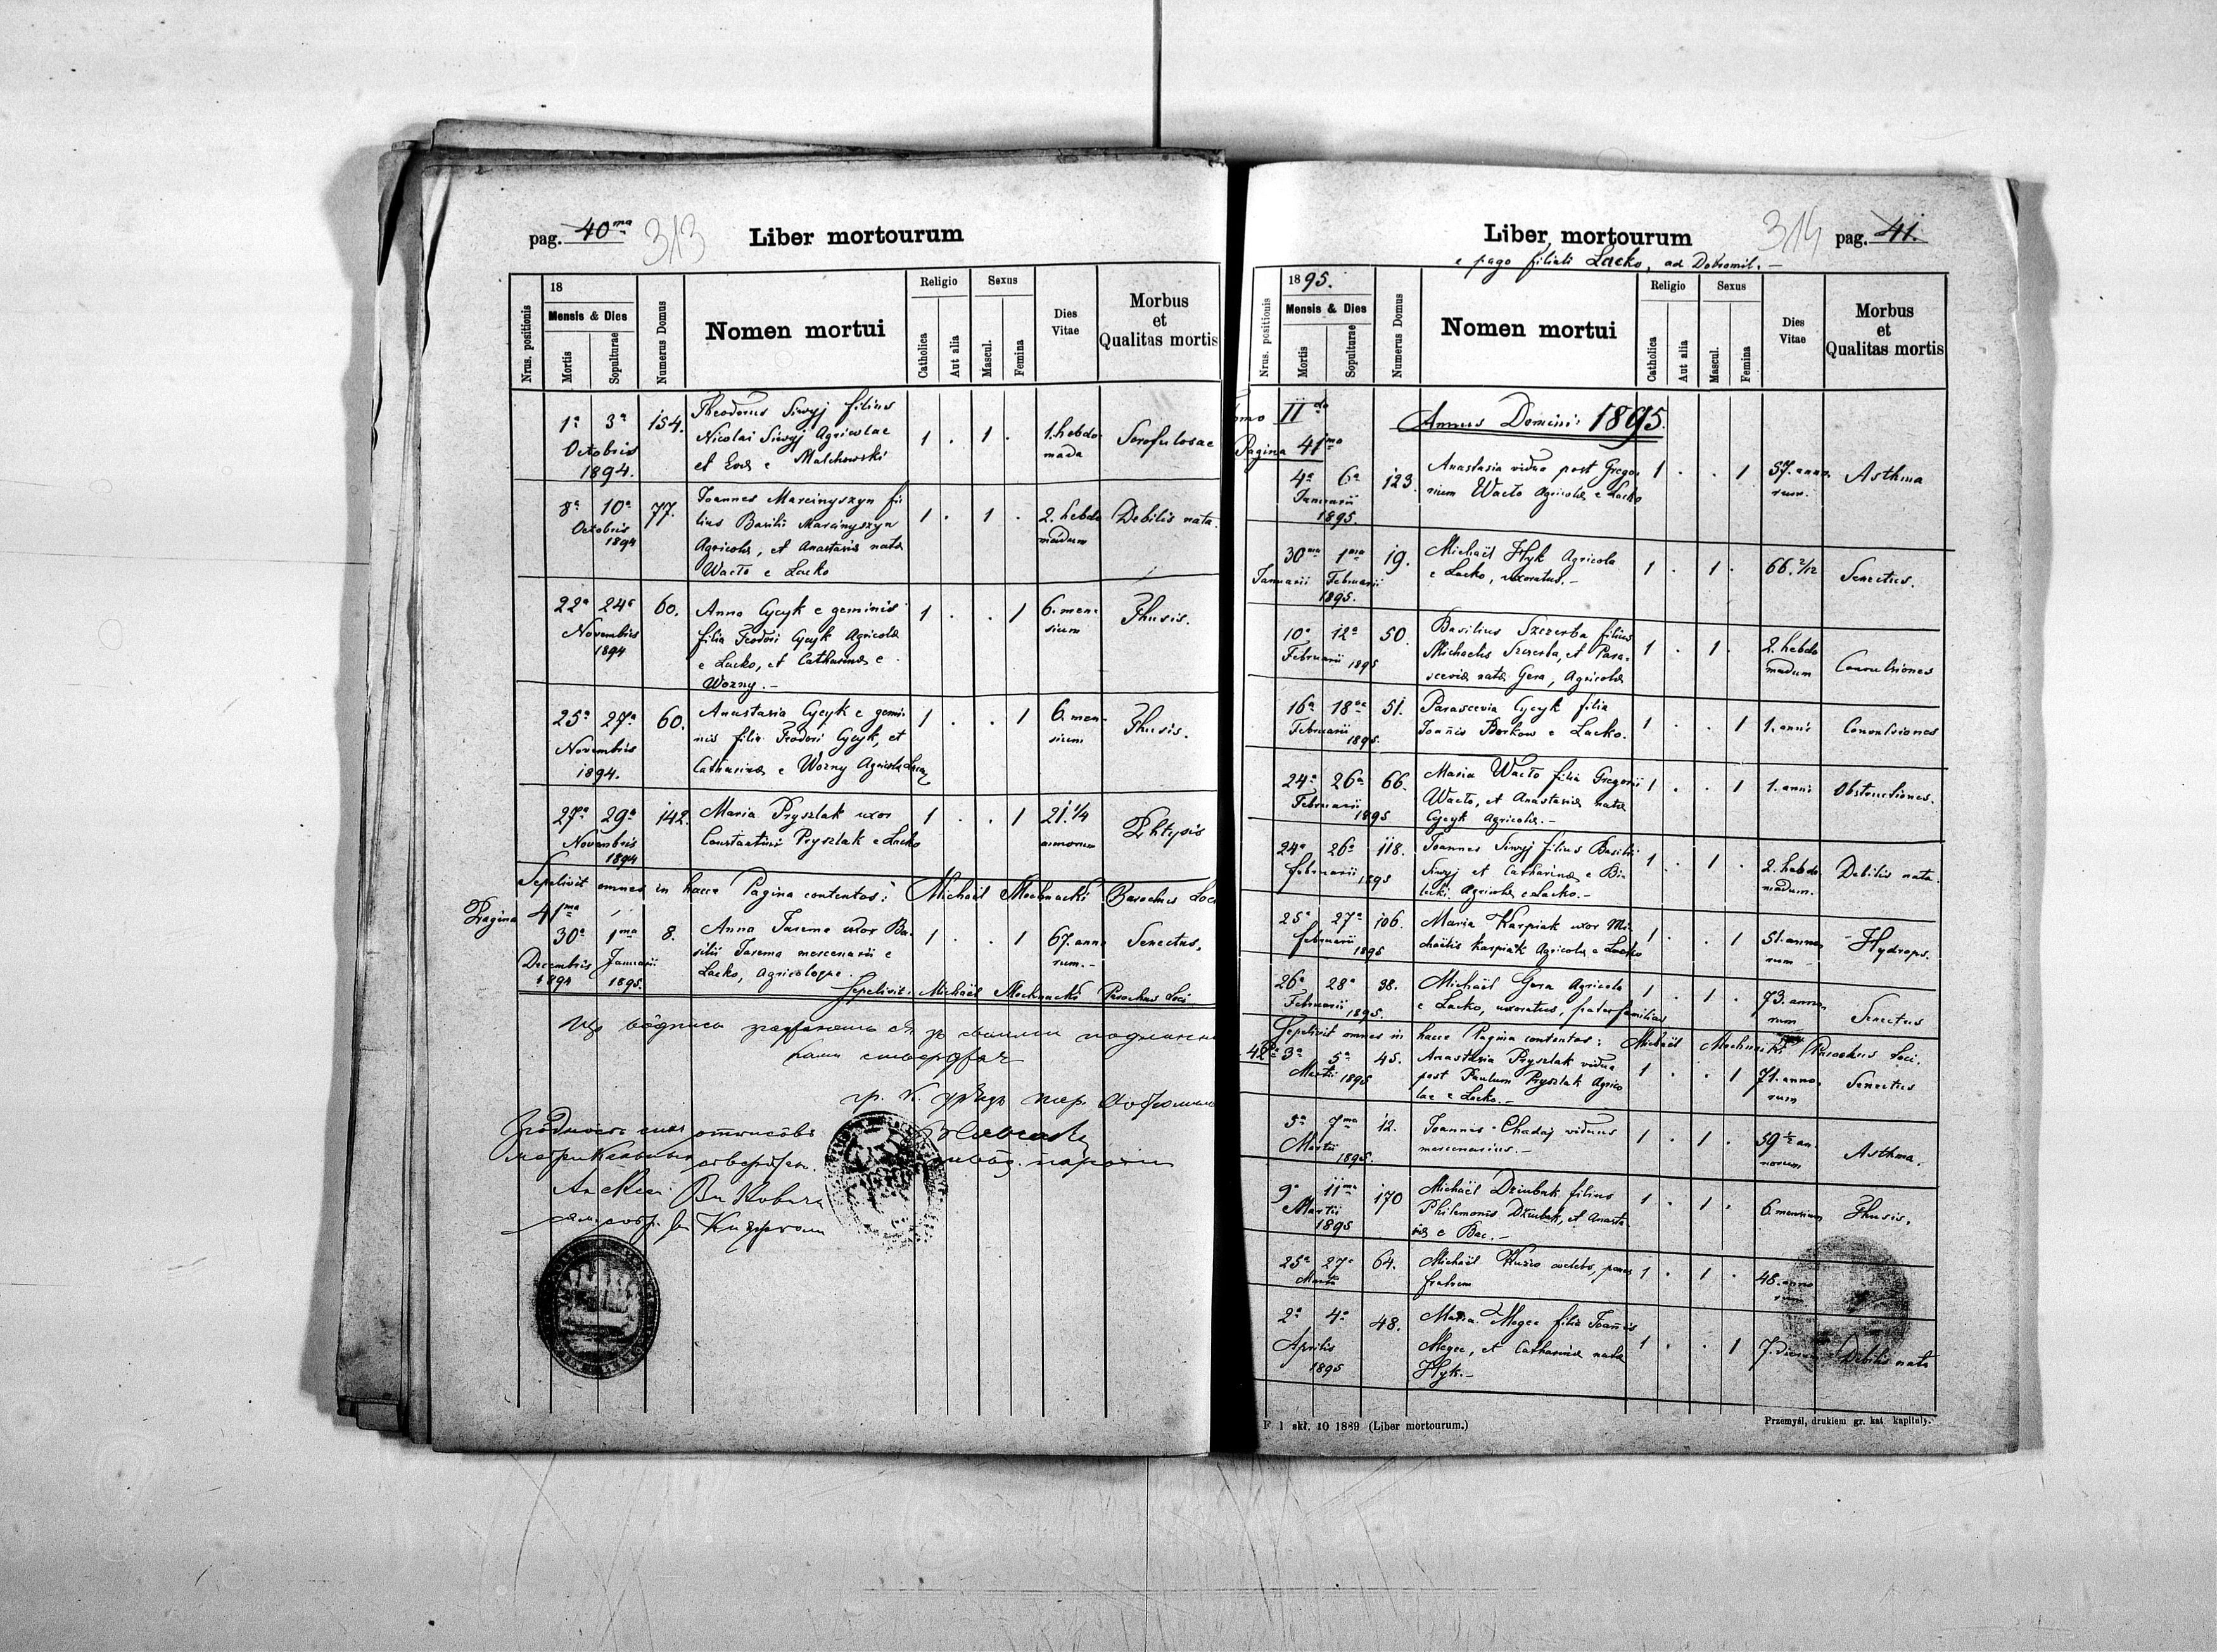 pag. 40ma 313 Liber mortourum
Nrus. positionis
18
Mensis & Dies
Mortis
Sopulturae
Numerus Domus
Nomen mortui
Religio
Catholica
Aut alia
Sexus
Mascul.
Femina
Dies
Vitae
Morbus
et
Qualitas mortis
1a 3a 154. Theodorus Siwyj filius
Nicolai Siwyj Agricolae 1 . 1 . 1. hebdo Scrofulosae
Octobris et Evae e Malchowski mada
1894.
8a 10a 77. Joannes Marcinyszyn fi-
Octobris lius Basilii Marcinyszyn 1 . 1 . 2. hebdo Debilis nata.
1894 Agricolae, et Anastasia nata madum
Wacło e Lacko
22a 24a 60. Anna Cycyk e geminis 1 . . 1 6. men- Thusis.
Novembris filia Teodori Cycyk Agricolae sium
1894 e Lacko, et Catharinae e
Wozny.-
25a 27a 60. Anastasia Cycyk e gemi- 1 . . 1 6. men- Thusis.
Novembris nis filia Teodori Cycyk, et sium
1894. Catharinae e Wozny Agricolae
27a 29a 142. Maria Pryszlak uxor 1 . . 1 21.1/4 Phtysis
Novembris Constantini Pryszlak e Lacko annorum
1894
Sepelivit omnes in hacce Pagina contentos: Michaël Mochnacki Parochus Loci
Pagina 41ma
30a 1ma 8. Anna Jarema uxor Ba- 1 . . 1 67. anno Senectus.
Decembris Januarii silii Jarema mercenarii e rum.-
1894 1895. Lacko, Agricolaque.
Sepelivit: Michaël Mochnacki Parochus Loci
Liber mortourum 314 pag. 41.
e pago filiali Lacko, ad Dobromil.-
Nrus. positionis
1895.
Mensis & Dies
Mortis
Sopulturae
Numerus Domus
Nomen mortui
Religio
Catholica
Aut alia
Sexus
Mascul.
Femina
Dies
Vitae
Morbus
et
Qualitas mortis
IIdo Annus Domini: 1895.
Pagina 41ma
4a 6a 123. Anastasia vidua post Grego- 1 . . 1 57. anno Asthma
Januarii rium Wacło Agricolae e Lacko rum.
1895.
30ma 1ma 19. Michaël Hyk Agricola 1 . 1 . 66. 2/12 Senectus.
Januarii Februarii e Lacko, uxoratus.-
1895.
10a 12a 50. Basilius Szczerba filius 1 . 1 . 2. hebdo Convulsiones
Februarii 1895 Michaelis Szczerba, et Para- madum
scevia nata Gera, Agricolae
16a 18va 51. Parascevia Cycyk filia 1 . . 1 1. anni Convulsiones
Februarii 1895. Joannis Borkow e Lacko.
24a 26a 66. Maria Wacło filia Gregorii 1 . . 1 1. anni Obstructiones.
Februarii 1895 Wacło, et Anastasia nata
Cycyk Agricolae.-
24a 26a 118. Joannes Siwyj filius Basilii 1 . 1 . 2. hebdo Debilis nata.
februarii 1895 Siwyj et Catharinae e Bi- madum.
lecki Agricolae e Lacko.-
25a 27a 106. Maria Karpiak uxor Mi- 1 . . 1 51. anno Hydrops.
februarii 1895 chaëlis Karpiak Agricolae e Lacko rum
26a 28a 38. Michaël Gera Agricola 1 . 1 . 73. anno Senectus
Februarii 1895. e Lacko, uxoratus, paterfamilias rum
Sepelivit omnes in hacce Pagina contentos: Michaël Mochnacki Parochus Loci.
42a 3a 5a 45. Anastasia Pryszlak vidua 1 . . 1 71. anno Senectus
Martii 1895 post Paulum Pryszlak Agrico rum
lae e Lacko.-
5a 7ma 12. Joannes Chadaj viduus 1 . 1 . 59 1/2 an- Asthma.
Martii 1895. mercenarius.- norum
9a 11ma 170 Michaël Dziubak filius 1 . 1 . 6. mensium Thusis.
Martii Philemonis Dziubak, et Anasta-
1895 siae e Bac.-
25a 27a 64. Michaël caelebs, 1 . 1 . 48. anno
Martii fratrem rum
2a 4a 48. Maria Megec filia Joannis 1 . . 1 7. dierum Debilis nata
Aprilis Megec, et Catharina nata
1895 Hyk.-
F 1 skł. 10 1889 (Liber mortourum.)
Przemyśl, drukiem gr. kat. kapituły.